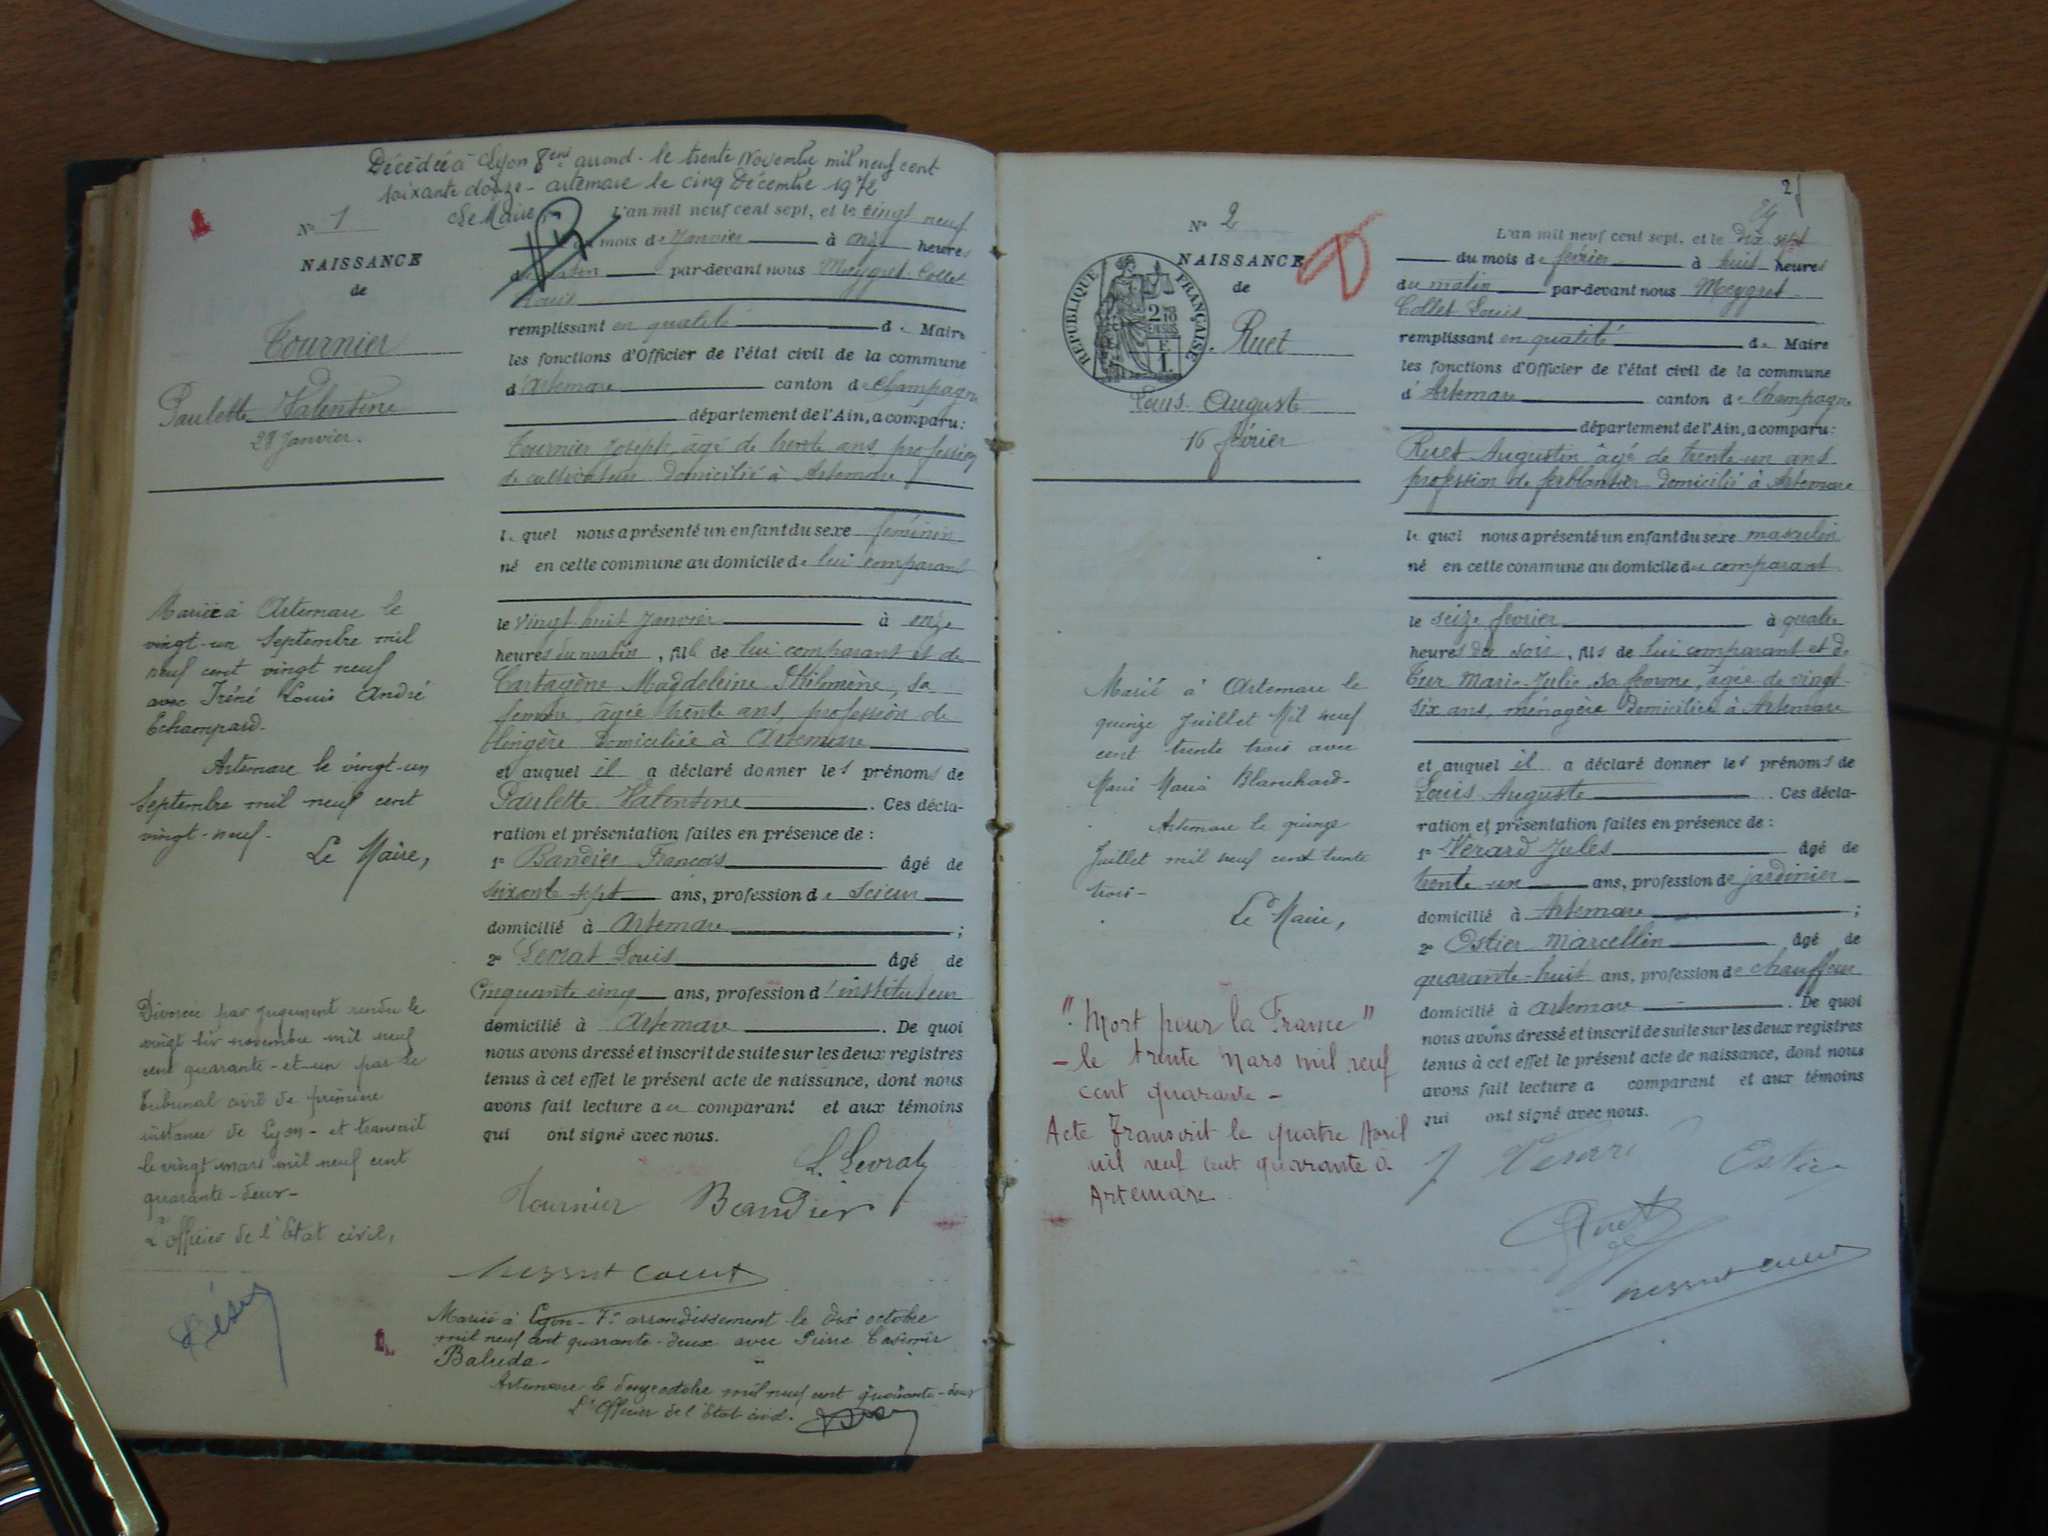 Décédée à Lyon 8eme arrond. le trente Novembre mil neuf cent
soixante douze - artemare le cinq Décembre 1972
Le Maire
N° 1
NAISSANCE
de
Tournier
Paulette Valentine
28 Janvier.
Mariée à Artemare le
vingt-un Septembre mil
neuf cent vingt neuf
avec Iréné Louis André
Echampard-
Artemare le vingt-un
Septembre mil neuf cent
vingt-neuf-
Le Maire,
Divorcée par jugement rendu le
vingt six novembre mil neuf
cent quarante-et-un par le
Tribunal civil de première
instance de Lyon - et transcrit
le vingt mars mil neuf cent
quarante-deux-
L'officier de l'Etat civil,
L'an mil neuf cent sept, et le vingt neuf
du mois de Janvier à onze heures
du matin par-devant nous Meygret Collet
Louis
remplissant en qualité de Maire
les fonctions d'Officier de l'état civil de la commune
d'Artemare canton de Champagne
département de l'Ain, a comparu:
Tournier Joseph, âgé de trente ans, profession
de cultivateur domicilié à Artemare
lequel nous a présenté un enfant du sexe féminin
né en cette commune au domicile de lui comparant
le vingt huit Janvier à onze
heures du matin, fille de lui comparant et de
Cartagène Magdeleine Philomène, sa
femme, âgée trente ans, profession de
lingère domiciliée à Artemare
et auquel il a déclaré donner les prénoms de
Paulette Valentine. Ces décla-
ration et présentation faites en présence de:
1° Bandier François âgé de
soixante-sept ans, profession de scieur
domicilié à Artemare;
2° Levrat Louis âgé de
Cinquante cinq ans, profession d'instituteur
domicilié à Artemare. De quoi
nous avons dressé et inscrit de suite sur les deux registres
tenus à cet effet le présent acte de naissance, dont nous
avons fait lecture au comparant et aux témoins
qui ont signé avec nous.
L. Levrat
Tournier Bandier
Mariée à Lyon-7e arrondissement le dix octobre
mil neuf cent quarante-deux avec Pierre Casimir
Baluda-
Artemare le douze octobre mil neuf cent quarante-deux
L'Officier de l'Etat civil.
2
N° 2
NAISSANCE
de
RÉPUBLIQUE FRANÇAISE
Ruet
Louis Auguste
16 février
Marié à Artemare le
quinze Juillet Mil neuf
cent trente trois avec
Marie Maria Blanchard-
Artemare le quinze
Juillet mil neuf cent trente
trois-
Le Maire,
"Mort pour la France"
- le trente Mars mil neuf
cent quarante -
Acte Transcrit le quatre Avril
mil neuf cent quarante à
Artemare.
L'an mil neuf cent sept, et le dix sept
du mois de février à huit heures
du matin par-devant nous Meygret
Collet Louis
remplissant en qualité de Maire
les fonctions d'Officier de l'état civil de la commune
d'Artemare canton de Champagne
département de l'Ain, a comparu:
Ruet Augustin âgé de trente-un ans
profession de ferblantier domicilié à Artemare
lequel nous a présenté un enfant du sexe masculin
né en cette commune au domicile du comparant
le seize février à quatre
heures du soir, fils de lui comparant et de
Tur Marie-Julie sa femme, âgée de vingt-
six ans, ménagère domiciliée à Artemare
et auquel il a déclaré donner les prénoms de
Louis Auguste. Ces décla-
ration et présentation faites en présence de:
1° Vérard Jules âgé de
trente-un ans, profession de jardinier
domicilié à Artemare;
2° Ostier Marcellin âgé de
quarante-huit ans, profession de chauffeur
domicilié à Artemare. De quoi
nous avons dressé et inscrit de suite sur les deux registres
tenus à cet effet le présent acte de naissance, dont nous
avons fait lecture a comparant et aux témoins
qui ont signé avec nous.
Ostier
Ruet